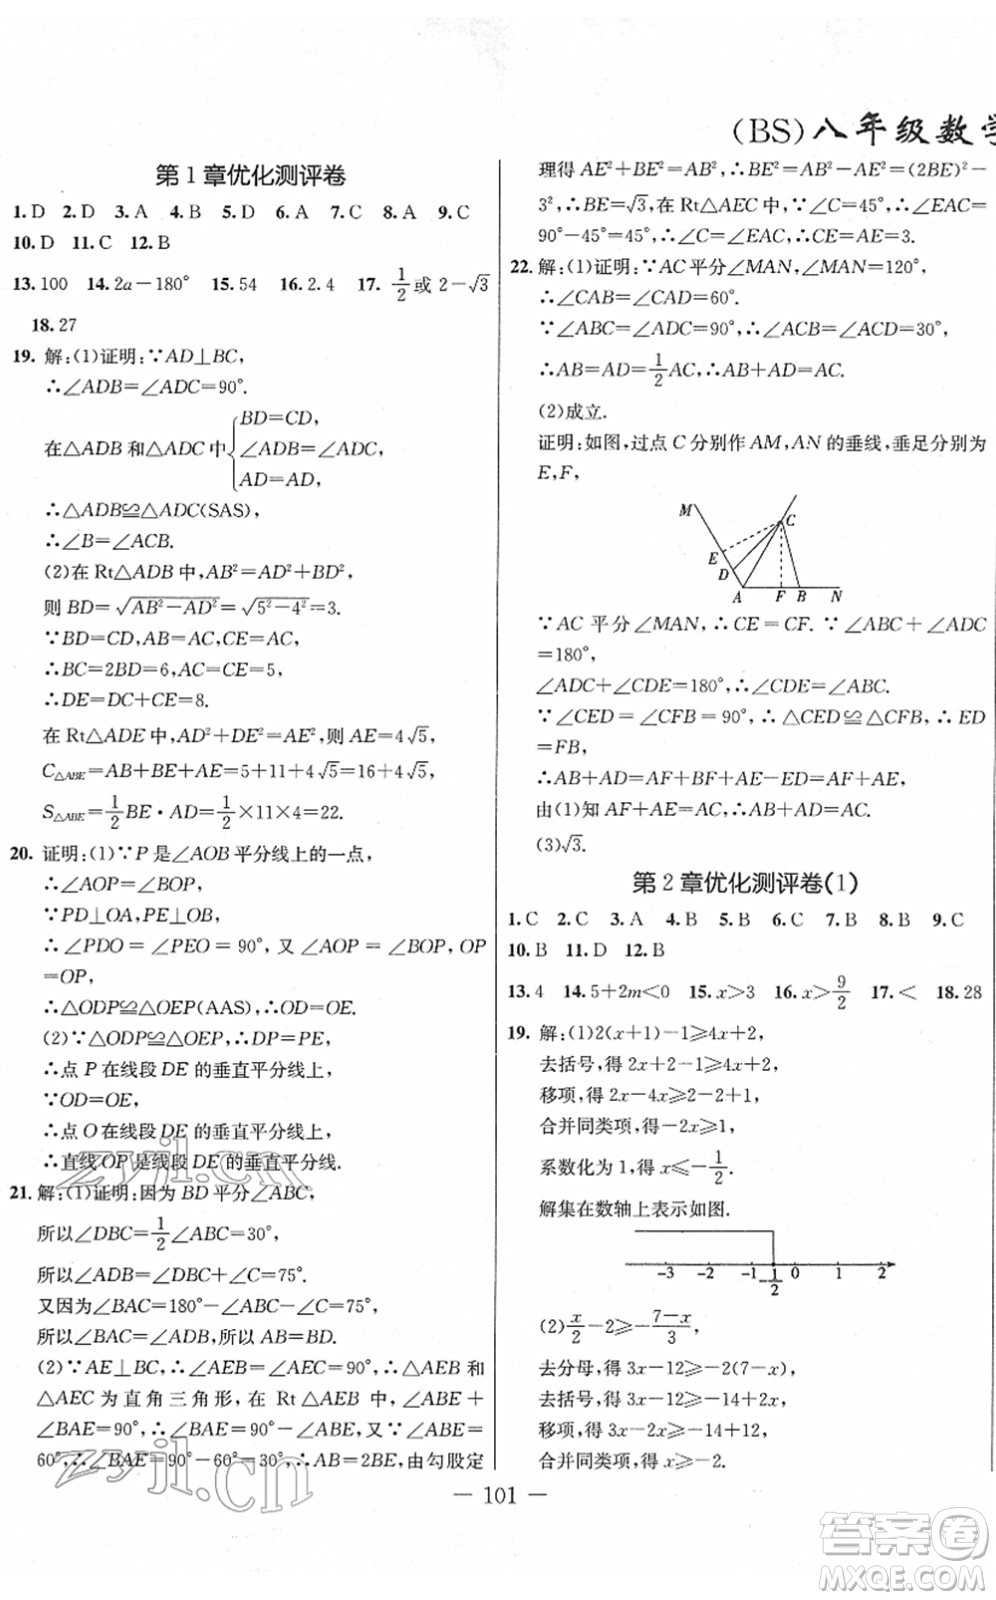 (BS)八年级数学
第1章优化测评卷
1. D 2. D 3. A 4. B 5. D 6. A 7. C 8. A 9. C
10. D 11. C 12. B
13. 100 14. 2a－180° 15. 54 16. 2.4 17. 1/2或2－√3
18. 27
19. 解:(1)证明:∵AD⊥BC,
∴∠ADB＝∠ADC＝90°.
在△ADB和△ADC中{BD＝CD, ∠ADB＝∠ADC, AD＝AD,
∴△ADB≌△ADC(SAS),
∴∠B＝∠ACB.
(2)在Rt△ADB中,AB²＝AD²＋BD²,
则BD＝√(AB²－AD²)＝√(5²－4²)＝3.
∵BD＝CD,AB＝AC,CE＝AC,
∴BC＝2BD＝6,AC＝CE＝5,
∴DE＝DC＋CE＝8.
在Rt△ADE中,AD²＋DE²＝AE²,则AE＝4√5,
C△ABE＝AB＋BE＋AE＝5＋11＋4√5＝16＋4√5,
S△ABE＝1/2BE·AD＝1/2×11×4＝22.
20. 证明:(1)∵P是∠AOB平分线上的一点,
∴∠AOP＝∠BOP,
∵PD⊥OA,PE⊥OB,
∴∠PDO＝∠PEO＝90°,又∠AOP＝∠BOP,OP
＝OP,
∴△ODP≌△OEP(AAS),∴OD＝OE.
(2)∵△ODP≌△OEP,∴DP＝PE,
∴点P在线段DE的垂直平分线上,
∵OD＝OE,
∴点O在线段DE的垂直平分线上,
∴直线OP是线段DE的垂直平分线.
21. 解:(1)证明:因为BD平分∠ABC,
所以∠DBC＝1/2∠ABC＝30°,
所以∠ADB＝∠DBC＋∠C＝75°.
又因为∠BAC＝180°－∠ABC－∠C＝75°,
所以∠BAC＝∠ADB,所以AB＝BD.
(2)∵AE⊥BC,∴∠AEB＝∠AEC＝90°,∴△AEB和
△AEC为直角三角形,在Rt△AEB中,∠ABE＋
∠BAE＝90°,∴∠BAE＝90°－∠ABE,又∵∠ABE＝
60°,∴∠BAE＝90°－60°＝30°,∴AB＝2BE,由勾股定
理得AE²＋BE²＝AB²,∴BE²＝AB²－AE²＝(2BE)²－
3²,∴BE＝√3,在Rt△AEC中,∵∠C＝45°,∴∠EAC＝
90°－45°＝45°,∴∠C＝∠EAC,∴CE＝AE＝3.
22. 解:(1)证明:∵AC平分∠MAN,∠MAN＝120°,
∴∠CAB＝∠CAD＝60°.
∵∠ABC＝∠ADC＝90°,∴∠ACB＝∠ACD＝30°,
∴AB＝AD＝1/2AC,∴AB＋AD＝AC.
(2)成立.
证明:如图,过点C分别作AM,AN的垂线,垂足分别为
E,F,
M
E
D
A
F
B
N
C
∵AC平分∠MAN,∴CE＝CF.∵∠ABC＋∠ADC
＝180°,
∠ADC＋∠CDE＝180°,∴∠CDE＝∠ABC.
∵∠CED＝∠CFB＝90°,∴△CED≌△CFB,∴ED
＝FB,
∴AB＋AD＝AF＋BF＋AE－ED＝AF＋AE,
由(1)知AF＋AE＝AC,∴AB＋AD＝AC.
(3)√3.
第2章优化测评卷(1)
1. C 2. C 3. A 4. B 5. B 6. C 7. B 8. B 9. C
10. B 11. D 12. B
13. 4 14. 5＋2m＜0 15. x＞3 16. x＞9/2 17. ＜ 18. 28
19. 解:(1)2(x＋1)－1≥4x＋2,
去括号,得2x＋2－1≥4x＋2,
移项,得2x－4x≥2－2＋1,
合并同类项,得－2x≥1,
系数化为1,得x≤－1/2.
解集在数轴上表示如图.
-3 -2 -1 -1/2 0 1 2
(2)x/2－2≥－(7－x)/3,
去分母,得3x－12≥－2(7－x),
去括号,得3x－12≥－14＋2x,
移项,得3x－2x≥－14＋12,
合并同类项,得x≥－2.
— 101 —
zyjl.cn
zyjl.cn
答案卷
MXEQE.COM